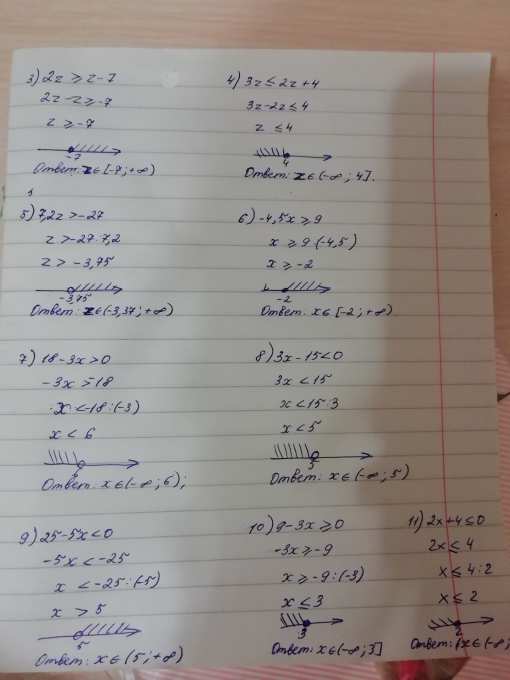 3) 2z ≥ z-7
2z-z ≥ -7
z ≥ -7
-7
Ответ: z∈[-7;+∞)
4) 3z ≤ 2z+4
3z-2z ≤ 4
z ≤ 4
4
Ответ: z∈(-∞;4].
5) 7,2z > -27
z > -27:7,2
z > -3,75
-3,75
Ответ: z∈(-3,37;+∞)
6) -4,5x ≥ 9
x ≥ 9(-4,5)
x ≥ -2
-2
Ответ: x∈[-2;+∞)
7) 18-3x>0
-3x>-18
x<-18:(-3)
x<6
6
Ответ: x∈(-∞;6);
8) 3x-15<0
3x<15
x<15:3
x<5
5
Ответ: x∈(-∞;5)
9) 25-5x<0
-5x<-25
x<-25:(-5)
x>5
5
Ответ: x∈(5;+∞)
10) 9-3x ≥ 0
-3x ≥ -9
x ≥ -9:(-3)
x ≤ 3
3
Ответ: x∈(-∞;3]
11) 2x+4 ≤ 0
2x ≤ 4
x ≤ 4:2
x ≤ 2
2
Ответ: x∈(-∞;